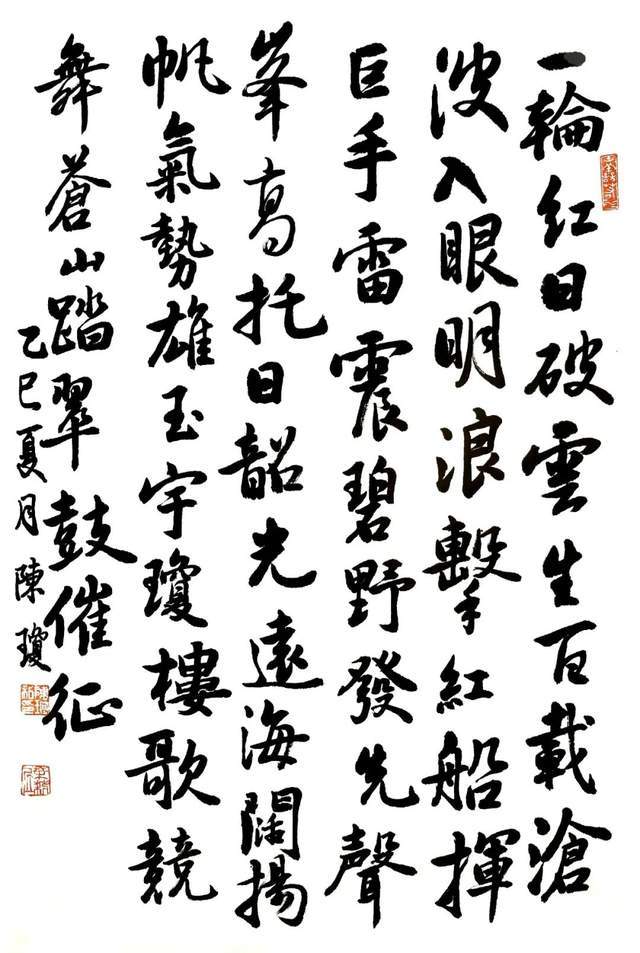 一輪紅日破雲生百載滄
波入眼明浪擊紅船揮
巨手雷震碧野發先聲
峯高托日韶光遠海闊揚
帆氣勢雄玉宇瓊樓歌競
舞蒼山踏翠鼓催征
乙巳夏月陳瓊